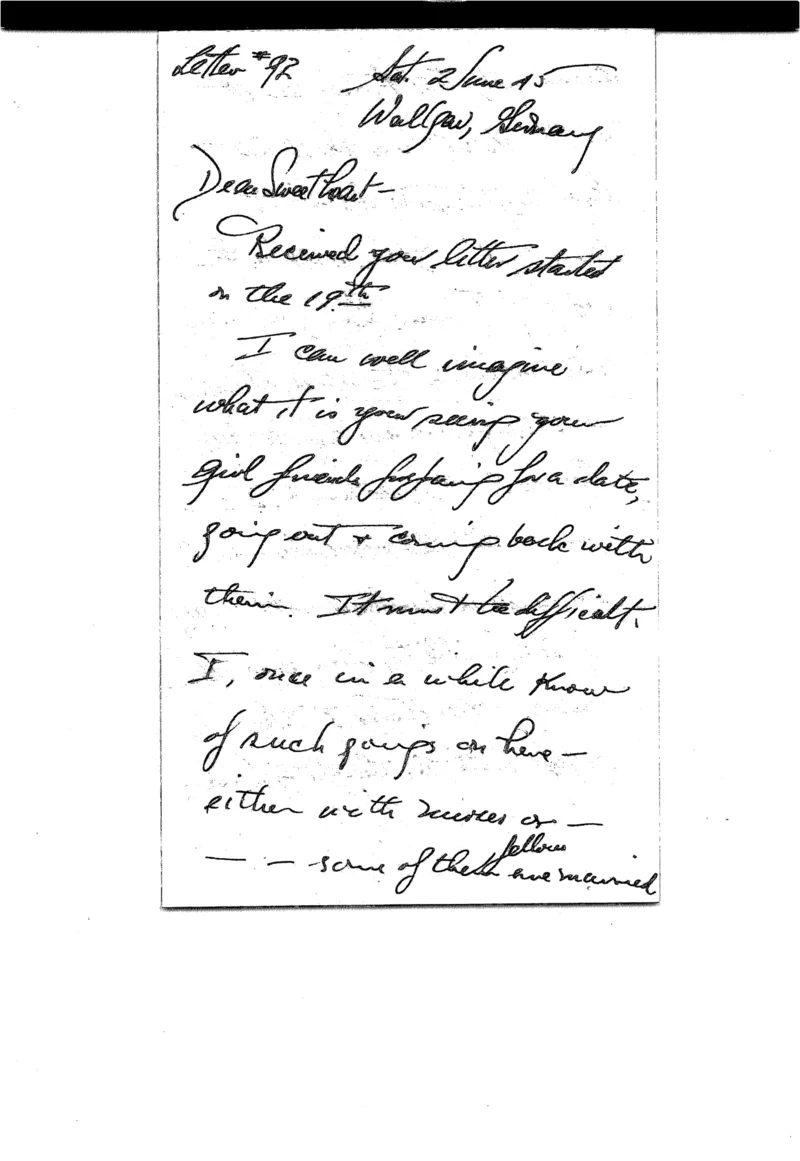 Letter #92 Sat. 2 June 45
Wallgau, Germany
Dear Sweetheart -
Received your letter started
on the 19th
I can well imagine
what it is your seeing your
girl friends for a date,
going out & coming back with
them. It must be difficult.
I, once in a while know
of such goings on here -
either with nurses or -
- - some of these fellows are married